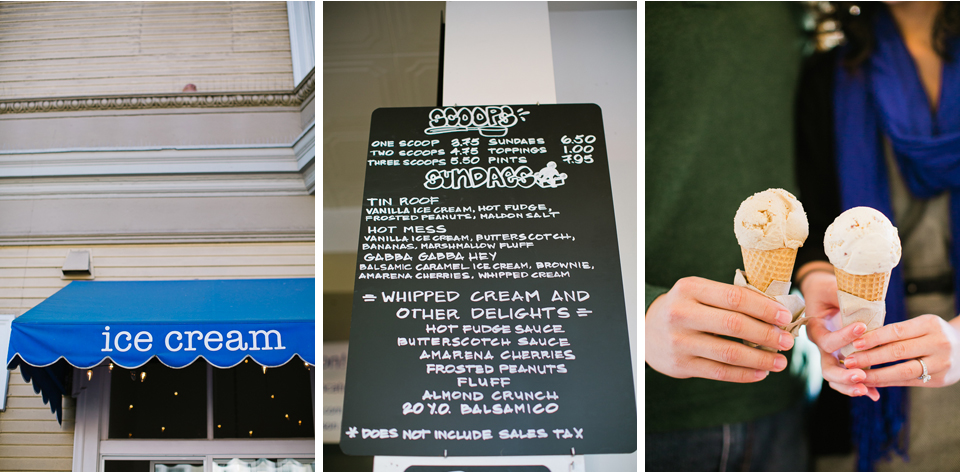 ice cream
SCOOPS
ONE SCOOP 3.75 SUNDAES 6.50
TWO SCOOPS 4.75 TOPPINGS 1.00
THREE SCOOPS 5.50 PINTS 7.95
SUNDAES
TIN ROOF
VANILLA ICE CREAM, HOT FUDGE,
FROSTED PEANUTS, MALDON SALT
HOT MESS
VANILLA ICE CREAM, BUTTERSCOTCH,
BANANAS, MARSHMALLOW FLUFF
GABBA GABBA HEY
BALSAMIC CARAMEL ICE CREAM, BROWNIE,
AMARENA CHERRIES, WHIPPED CREAM
= WHIPPED CREAM AND
OTHER DELIGHTS =
HOT FUDGE SAUCE
BUTTERSCOTCH SAUCE
AMARENA CHERRIES
FROSTED PEANUTS
FLUFF
ALMOND CRUNCH
20 Y.O. BALSAMICO
* DOES NOT INCLUDE SALES TAX